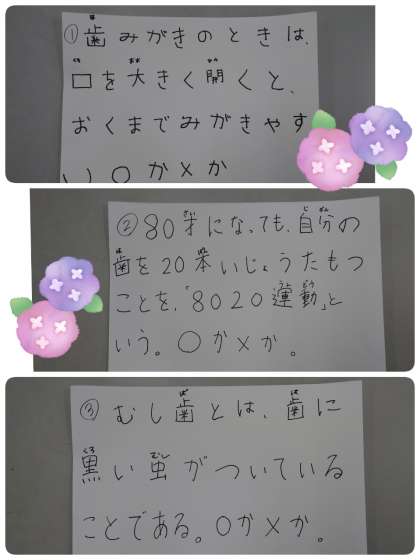 ①歯みがきのときは、
口を大きく開くと、
おくまでみがきやす
い○か×か
②80才になっても、自分の
歯を20本いじょうたもつ
ことを、「8020運動」と
いう。○か×か。
③むし歯とは、歯に
黒い虫がついている
ことである。○か×か。